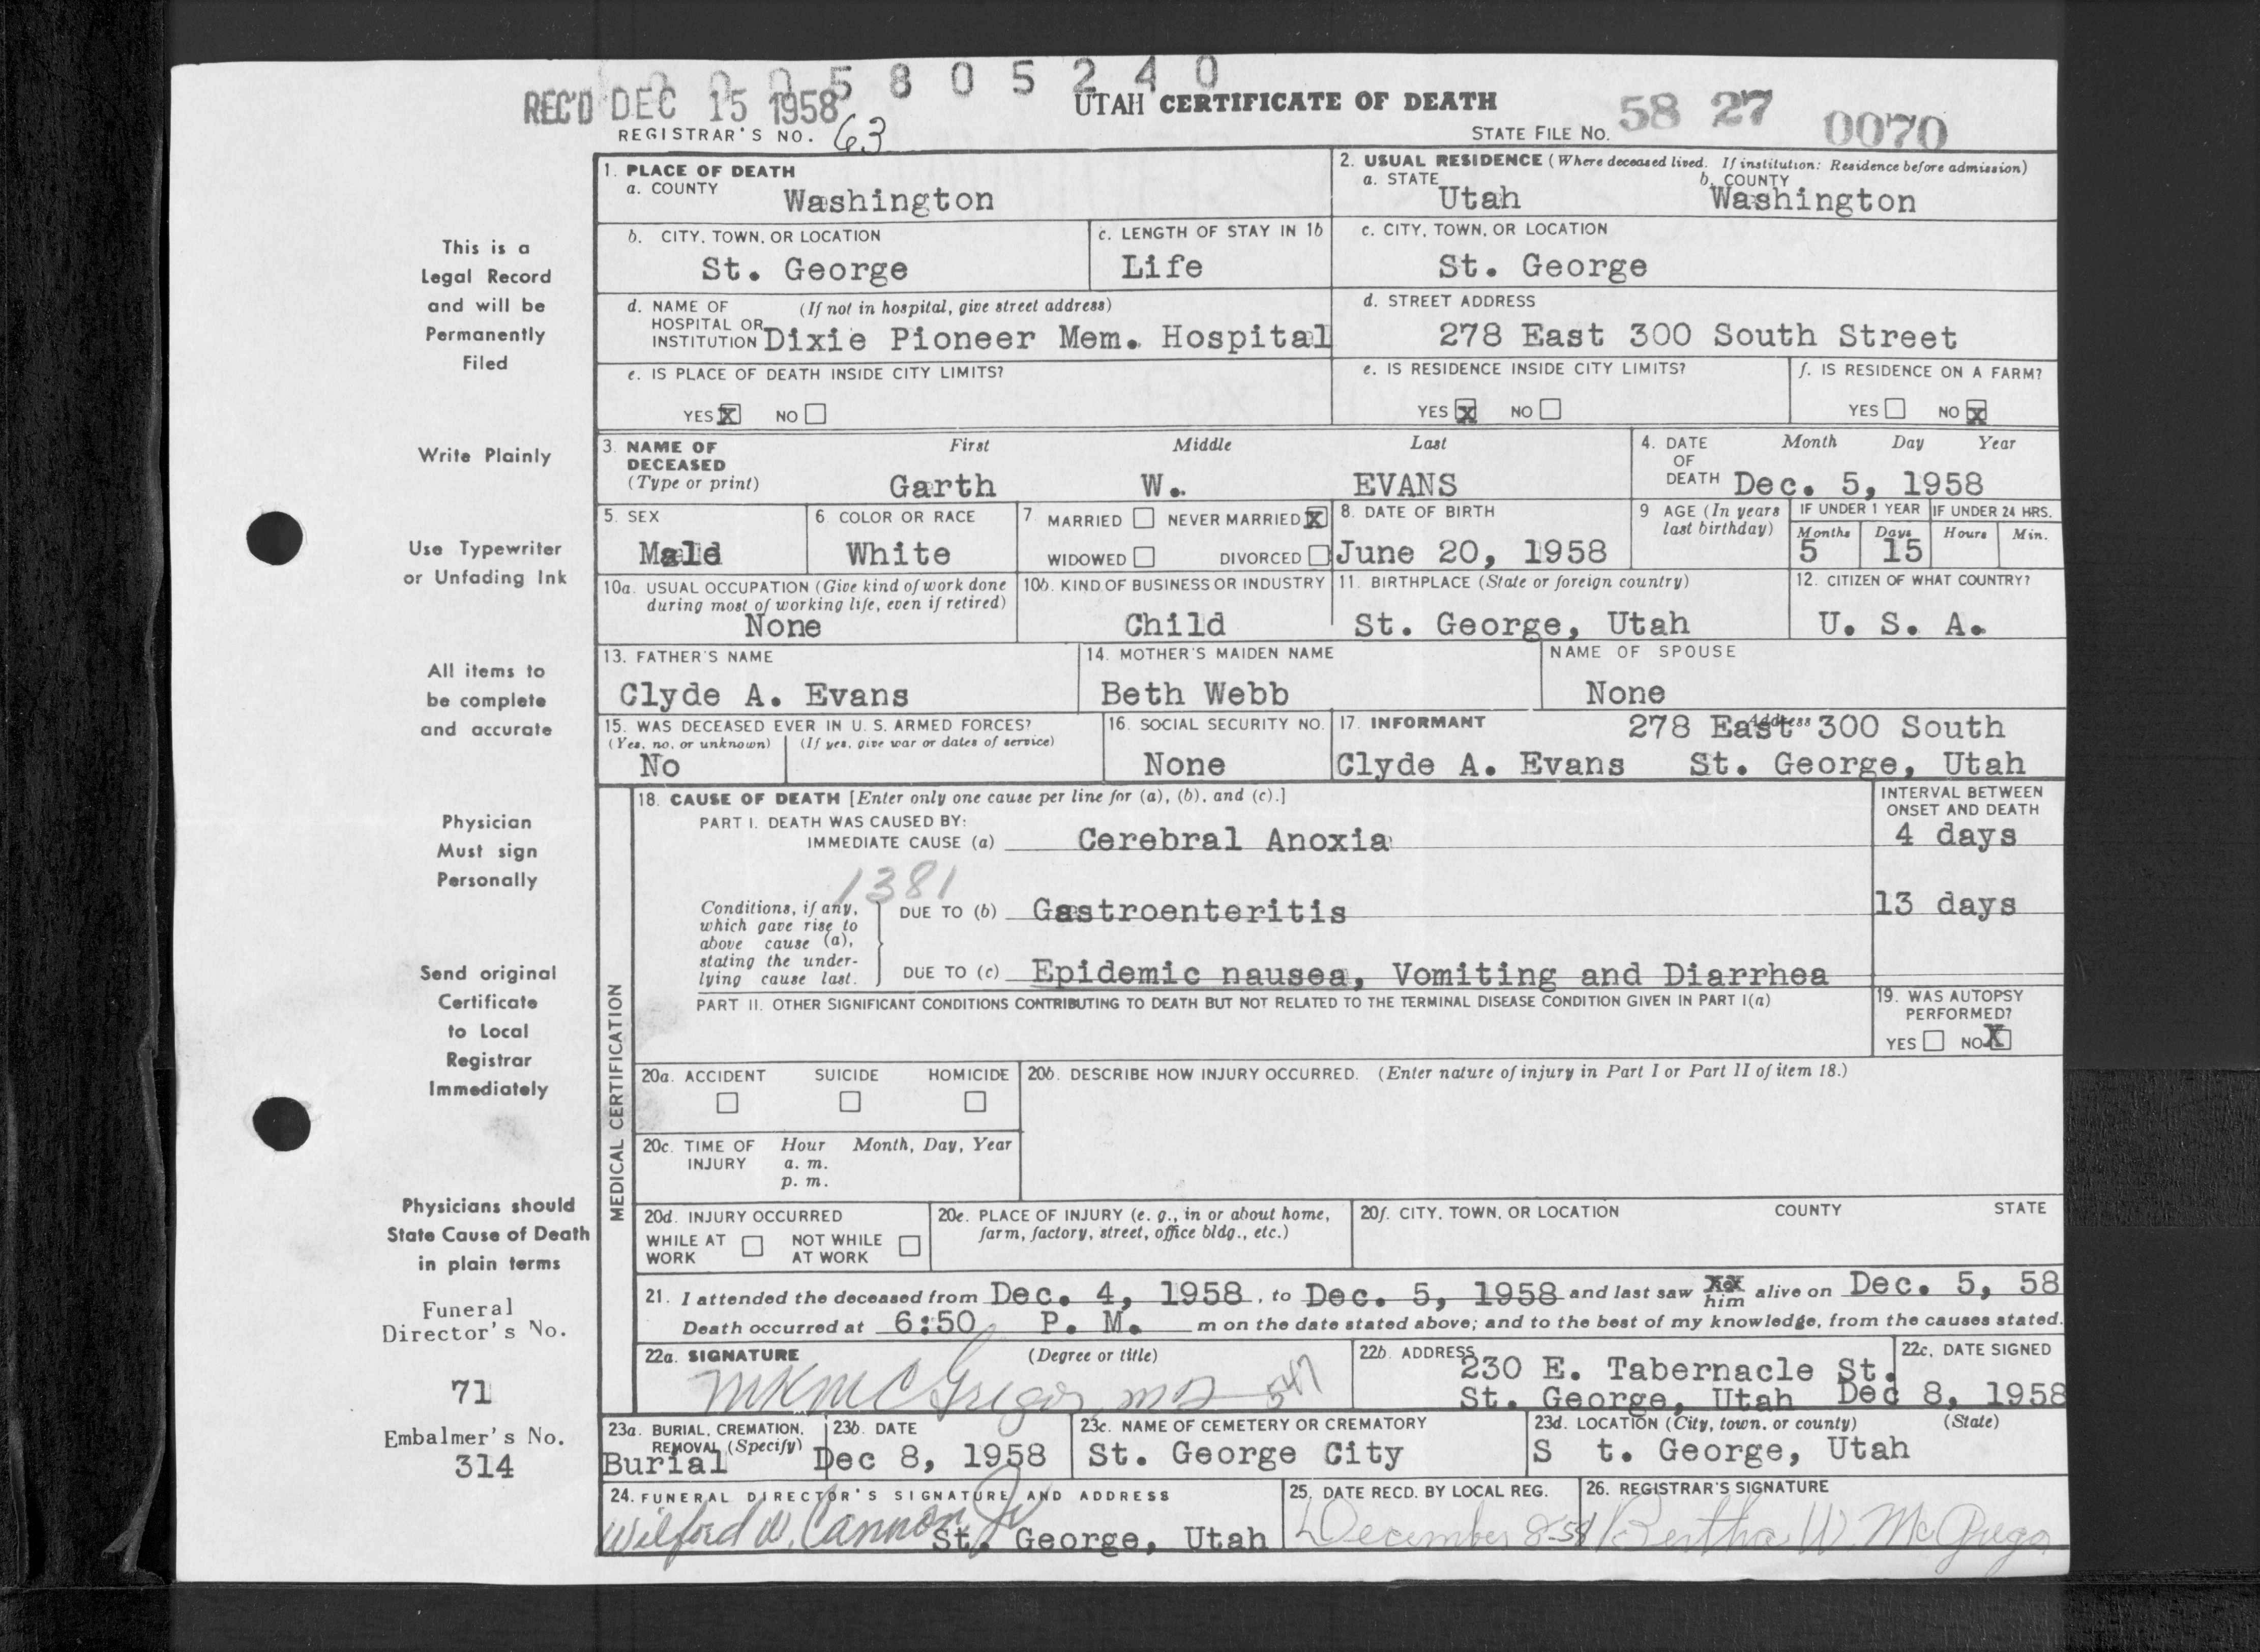 0 0 0 5 8 0 5 2 4 0
REC'D DEC 15 1958 UTAH CERTIFICATE OF DEATH
REGISTRAR'S NO. 63 STATE FILE NO. 58 27 0070
1. PLACE OF DEATH
a. COUNTY Washington
2. USUAL RESIDENCE (Where deceased lived. If institution: Residence before admission)
a. STATE Utah b. COUNTY Washington
b. CITY, TOWN, OR LOCATION St. George
c. LENGTH OF STAY IN 1b Life
c. CITY, TOWN, OR LOCATION St. George
d. NAME OF HOSPITAL OR INSTITUTION (If not in hospital, give street address) Dixie Pioneer Mem. Hospital
d. STREET ADDRESS 278 East 300 South Street
e. IS PLACE OF DEATH INSIDE CITY LIMITS? YES X NO
e. IS RESIDENCE INSIDE CITY LIMITS? YES X NO
f. IS RESIDENCE ON A FARM? YES NO X
3. NAME OF DECEASED (Type or print) First Middle Last
Garth W. EVANS
4. DATE OF DEATH Month Day Year
Dec. 5, 1958
5. SEX Male
6 COLOR OR RACE White
7 MARRIED NEVER MARRIED X
WIDOWED DIVORCED
8. DATE OF BIRTH June 20, 1958
9 AGE (In years last birthday)
IF UNDER 1 YEAR IF UNDER 24 HRS.
Months Days Hours Min.
5 15
10a. USUAL OCCUPATION (Give kind of work done during most of working life, even if retired)
None
10b. KIND OF BUSINESS OR INDUSTRY
Child
11. BIRTHPLACE (State or foreign country)
St. George, Utah
12. CITIZEN OF WHAT COUNTRY?
U. S. A.
13. FATHER'S NAME
Clyde A. Evans
14. MOTHER'S MAIDEN NAME
Beth Webb
NAME OF SPOUSE
None
15. WAS DECEASED EVER IN U. S. ARMED FORCES?
(Yes, no, or unknown) (If yes, give war or dates of service)
No
16. SOCIAL SECURITY NO.
None
17. INFORMANT Address 278 East 300 South
Clyde A. Evans St. George, Utah
MEDICAL CERTIFICATION
18. CAUSE OF DEATH [Enter only one cause per line for (a), (b), and (c).]
INTERVAL BETWEEN ONSET AND DEATH
PART I. DEATH WAS CAUSED BY:
IMMEDIATE CAUSE (a) Cerebral Anoxia 4 days
1381
Conditions, if any, which gave rise to above cause (a), stating the underlying cause last.
DUE TO (b) Gastroenteritis 13 days
DUE TO (c) Epidemic nausea, Vomiting and Diarrhea
PART II. OTHER SIGNIFICANT CONDITIONS CONTRIBUTING TO DEATH BUT NOT RELATED TO THE TERMINAL DISEASE CONDITION GIVEN IN PART I(a)
19. WAS AUTOPSY PERFORMED?
YES NO X
20a. ACCIDENT SUICIDE HOMICIDE
20b. DESCRIBE HOW INJURY OCCURRED. (Enter nature of injury in Part I or Part II of item 18.)
20c. TIME OF INJURY Hour Month, Day, Year
a. m.
p. m.
20d. INJURY OCCURRED
WHILE AT WORK NOT WHILE AT WORK
20e. PLACE OF INJURY (e. g., in or about home, farm, factory, street, office bldg., etc.)
20f. CITY, TOWN, OR LOCATION COUNTY STATE
21. I attended the deceased from Dec. 4, 1958, to Dec. 5, 1958 and last saw him alive on Dec. 5, 58
Death occurred at 6:50 P. M. m on the date stated above; and to the best of my knowledge, from the causes stated.
22a. SIGNATURE (Degree or title)
MKMcGregor MD 547
22b. ADDRESS
230 E. Tabernacle St.
St. George, Utah
22c. DATE SIGNED
Dec 8, 1958
23a. BURIAL, CREMATION, REMOVAL (Specify)
Burial
23b. DATE
Dec 8, 1958
23c. NAME OF CEMETERY OR CREMATORY
St. George City
23d. LOCATION (City, town, or county) (State)
S t. George, Utah
24. FUNERAL DIRECTOR'S SIGNATURE AND ADDRESS
Wilford W. Cannon Jr St. George, Utah
25. DATE RECD. BY LOCAL REG.
December 8-58
26. REGISTRAR'S SIGNATURE
Bertha W McGregor
This is a
Legal Record
and will be
Permanently
Filed
Write Plainly
Use Typewriter
or Unfading Ink
All items to
be complete
and accurate
Physician
Must sign
Personally
Send original
Certificate
to Local
Registrar
Immediately
Physicians should
State Cause of Death
in plain terms
Funeral
Director's No.
71
Embalmer's No.
314